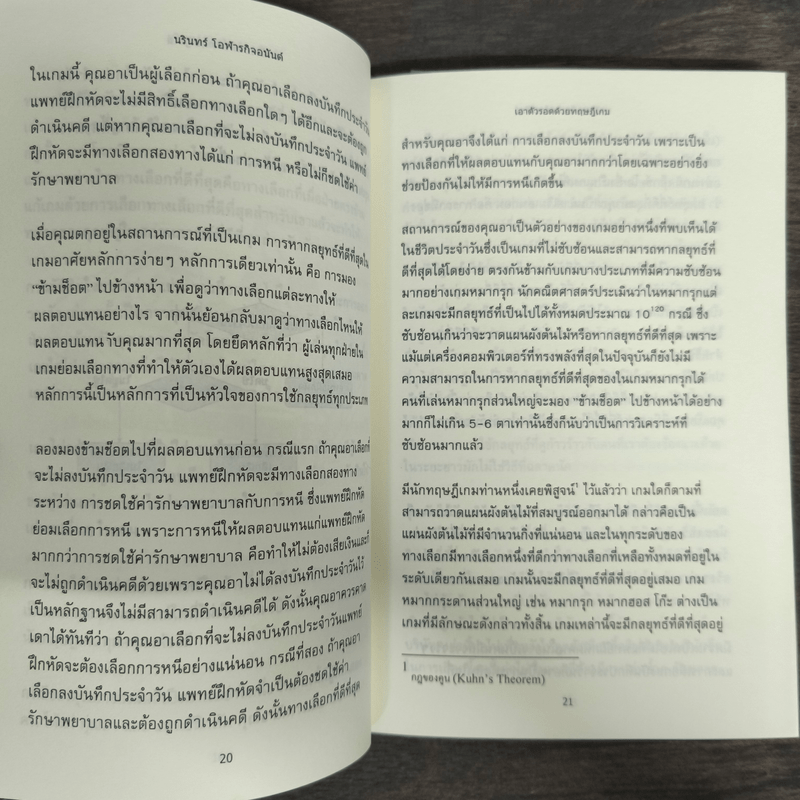 นรินทร์ โอฬารกิจอนันต์
ในเกมนี้ คุณอาเป็นผู้เลือกก่อน ถ้าคุณอาเลือกลงบันทึกประจำวัน
แพทย์ฝึกหัดจะไม่มีสิทธิ์เลือกทางเลือกใดๆ ได้อีกและจะต้องถูก
ดำเนินคดี แต่หากคุณอาเลือกที่จะไม่ลงบันทึกประจำวัน แพทย์
ฝึกหัดจะมีทางเลือกสองทางได้แก่ การหนี หรือไม่ก็ชดใช้ค่า
รักษาพยาบาล
เมื่อคุณตกอยู่ในสถานการณ์ที่เป็นเกม การหากลยุทธ์ที่ดีที่สุดใน
เกมอาศัยหลักการง่ายๆ หลักการเดียวเท่านั้น คือ การมอง
“ข้ามช็อต” ไปข้างหน้า เพื่อดูว่าทางเลือกแต่ละทางให้
ผลตอบแทนอย่างไร จากนั้นย้อนกลับมาดูว่าทางเลือกไหนให้
ผลตอบแทนกับคุณมากที่สุด โดยยึดหลักที่ว่า ผู้เล่นทุกฝ่ายใน
เกมย่อมเลือกทางที่ทำให้ตัวเองได้ผลตอบแทนสูงสุดเสมอ
หลักการนี้เป็นหลักการที่เป็นหัวใจของการใช้กลยุทธ์ทุกประเภท
ลองมองข้ามช๊อตไปที่ผลตอบแทนก่อน กรณีแรก ถ้าคุณอาเลือกที่
จะไม่ลงบันทึกประจำวัน แพทย์ฝึกหัดจะมีทางเลือกสองทาง
ระหว่าง การชดใช้ค่ารักษาพยาบาลกับการหนี ซึ่งแพทย์ฝึกหัด
ย่อมเลือกการหนี เพราะการหนีให้ผลตอบแทนแก่แพทย์ฝึกหัด
มากกว่าการชดใช้ค่ารักษาพยาบาล คือทำให้ไม่ต้องเสียเงินและก็
จะไม่ถูกดำเนินคดีด้วยเพราะคุณอาไม่ได้ลงบันทึกประจำวันไว้
เป็นหลักฐานจึงไม่มีสามารถดำเนินคดีได้ ดังนั้นคุณอาควรคาด
เดาได้ทันทีว่า ถ้าคุณอาเลือกที่จะไม่ลงบันทึกประจำวันแพทย์
ฝึกหัดจะต้องเลือกการหนีอย่างแน่นอน กรณีที่สอง ถ้าคุณอา
เลือกลงบันทึกประจำวัน แพทย์ฝึกหัดจำเป็นต้องชดใช้ค่า
รักษาพยาบาลและต้องถูกดำเนินคดี ดังนั้นทางเลือกที่ดีที่สุด
20
เอาตัวรอดด้วยทฤษฎีเกม
สำหรับคุณอาจึงได้แก่ การเลือกลงบันทึกประจำวัน เพราะเป็น
ทางเลือกที่ให้ผลตอบแทนกับคุณอามากกว่าโดยเฉพาะอย่างยิ่ง
ช่วยป้องกันไม่ให้มีการหนีเกิดขึ้น
สถานการณ์ของคุณอาเป็นตัวอย่างของเกมอย่างหนึ่งที่พบเห็นได้
ในชีวิตประจำวันซึ่งเป็นเกมที่ไม่ซับซ้อนและสามารถหากลยุทธ์ที่
ดีที่สุดได้โดยง่าย ตรงกันข้ามกับเกมบางประเภทที่มีความซับซ้อน
มากอย่างเกมหมากรุก นักคณิตศาสตร์ประเมินว่าในหมากรุกแต่
ละเกมจะมีกลยุทธ์ที่เป็นไปได้ทั้งหมดประมาณ 10¹²⁰ กรณี ซึ่ง
ซับซ้อนเกินกว่าจะวาดแผนผังต้นไม้หรือหากลยุทธ์ที่ดีที่สุด เพราะ
แม้แต่เครื่องคอมพิวเตอร์ที่ทรงพลังที่สุดในปัจจุบันก็ยังไม่มี
ความสามารถในการหากลยุทธ์ที่ดีที่สุดของในเกมหมากรุกได้
คนที่เล่นหมากรุกส่วนใหญ่จะมอง “ข้ามช็อต” ไปข้างหน้าได้อย่าง
มากก็ไม่เกิน 5-6 ตาเท่านั้นซึ่งก็นับว่าเป็นการวิเคราะห์ที่
ซับซ้อนมากแล้ว
มีนักทฤษฎีเกมท่านหนึ่งเคยพิสูจน์¹ ไว้แล้วว่า เกมใดก็ตามที่
สามารถวาดแผนผังต้นไม้ที่สมบูรณ์ออกมาได้ กล่าวคือเป็น
แผนผังต้นไม้ที่มีจำนวนกิ่งที่แน่นอน และในทุกระดับของ
ทางเลือกมีทางเลือกหนึ่งที่ดีกว่าทางเลือกที่เหลือทั้งหมดที่อยู่ใน
ระดับเดียวกันเสมอ เกมนั้นจะมีกลยุทธ์ที่ดีที่สุดอยู่เสมอ เกม
หมากกระดานส่วนใหญ่ เช่น หมากรุก หมากฮอส โก๊ะ ต่างเป็น
เกมที่มีลักษณะดังกล่าวทั้งสิ้น เกมเหล่านี้จะมีกลยุทธ์ที่ดีที่สุดอยู่
1 กฎของคูน (Kuhn's Theorem)
21